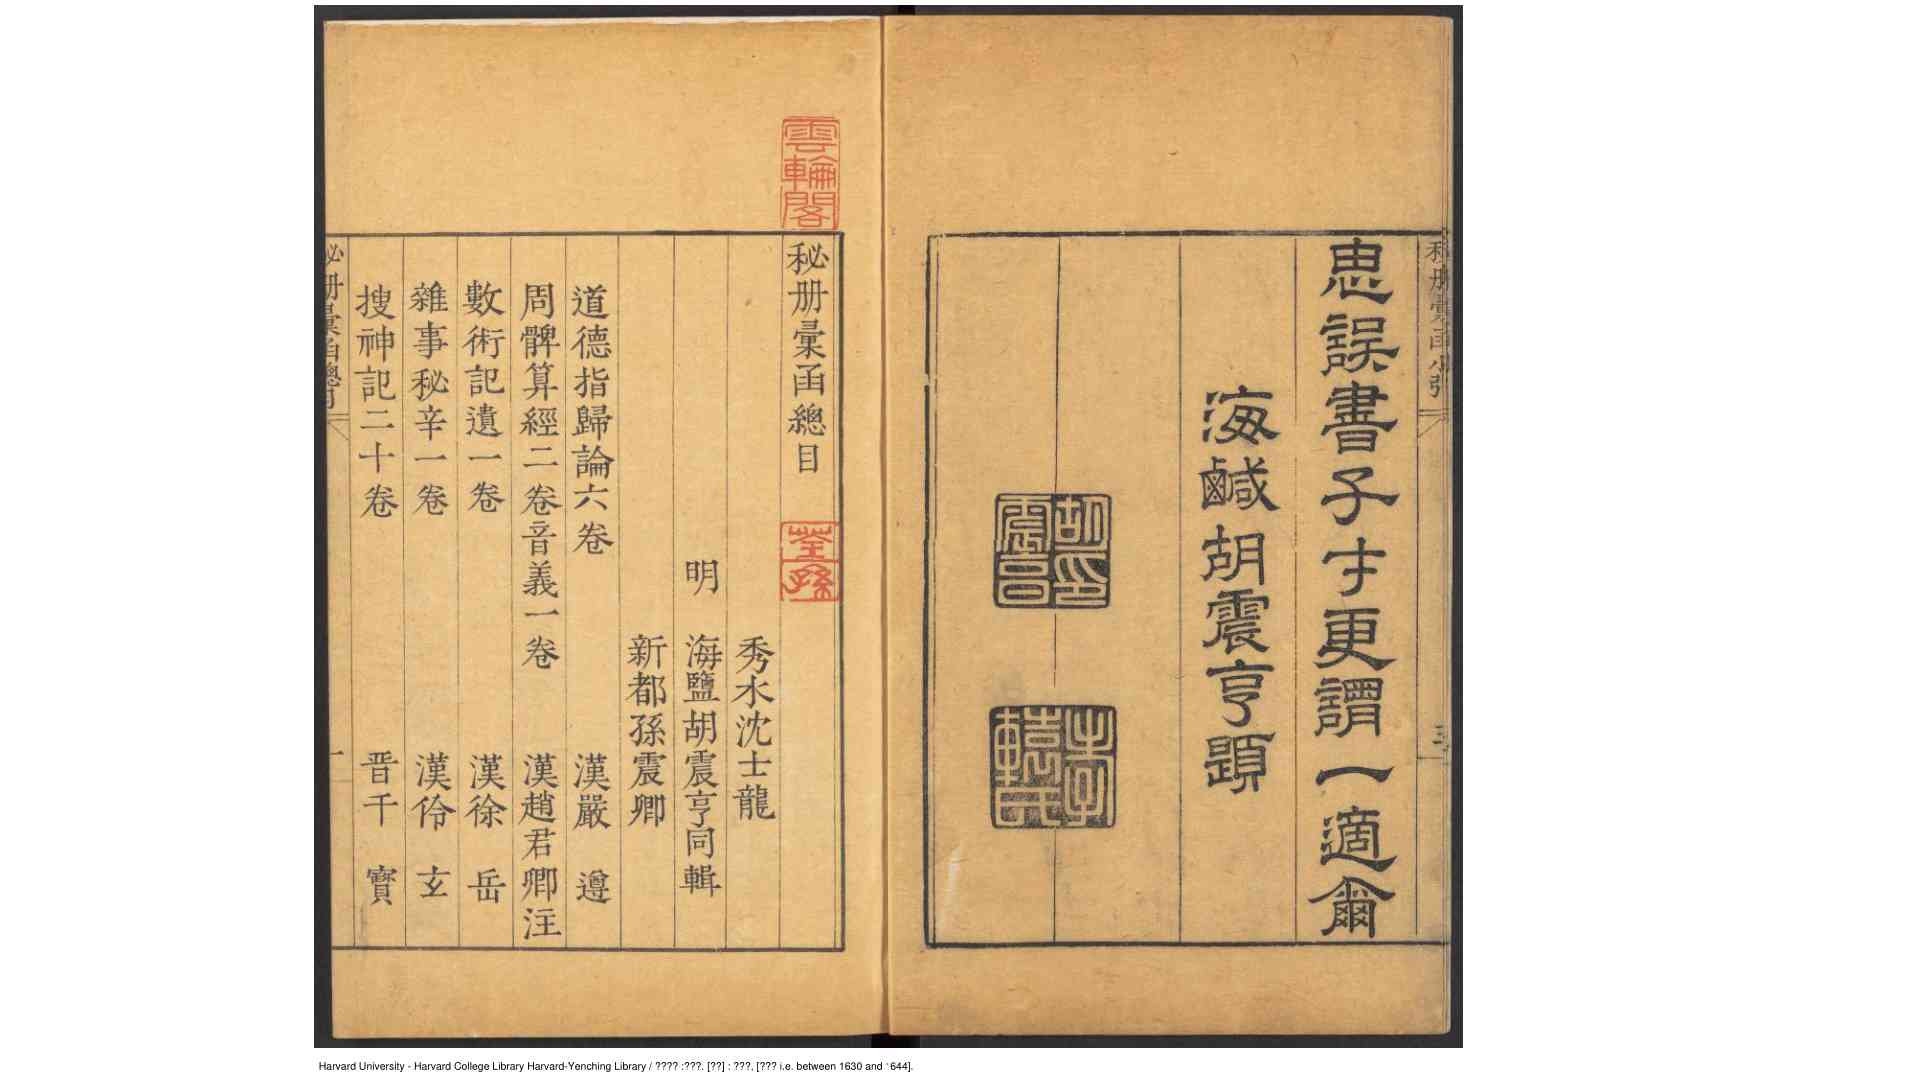 秘册彙函小引
三
思誤書子才更謂一適爾
海鹹胡震亨題
胡震亨印
雲輪閣
荃孫
秘册彙函總目
秀水沈士龍
明 海鹽胡震亨同輯
新都孫震卿
道德指歸論六卷 漢嚴遵
周髀算經二卷音義一卷 漢趙君卿注
數術記遺一卷 漢徐岳
雜事秘辛一卷 漢伶玄
搜神記二十卷 晋干寶
秘册彙函總目
一
Harvard University - Harvard College Library Harvard-Yenching Library / ???? :???. [??] : ???, [??? i.e. between 1630 and 1644].